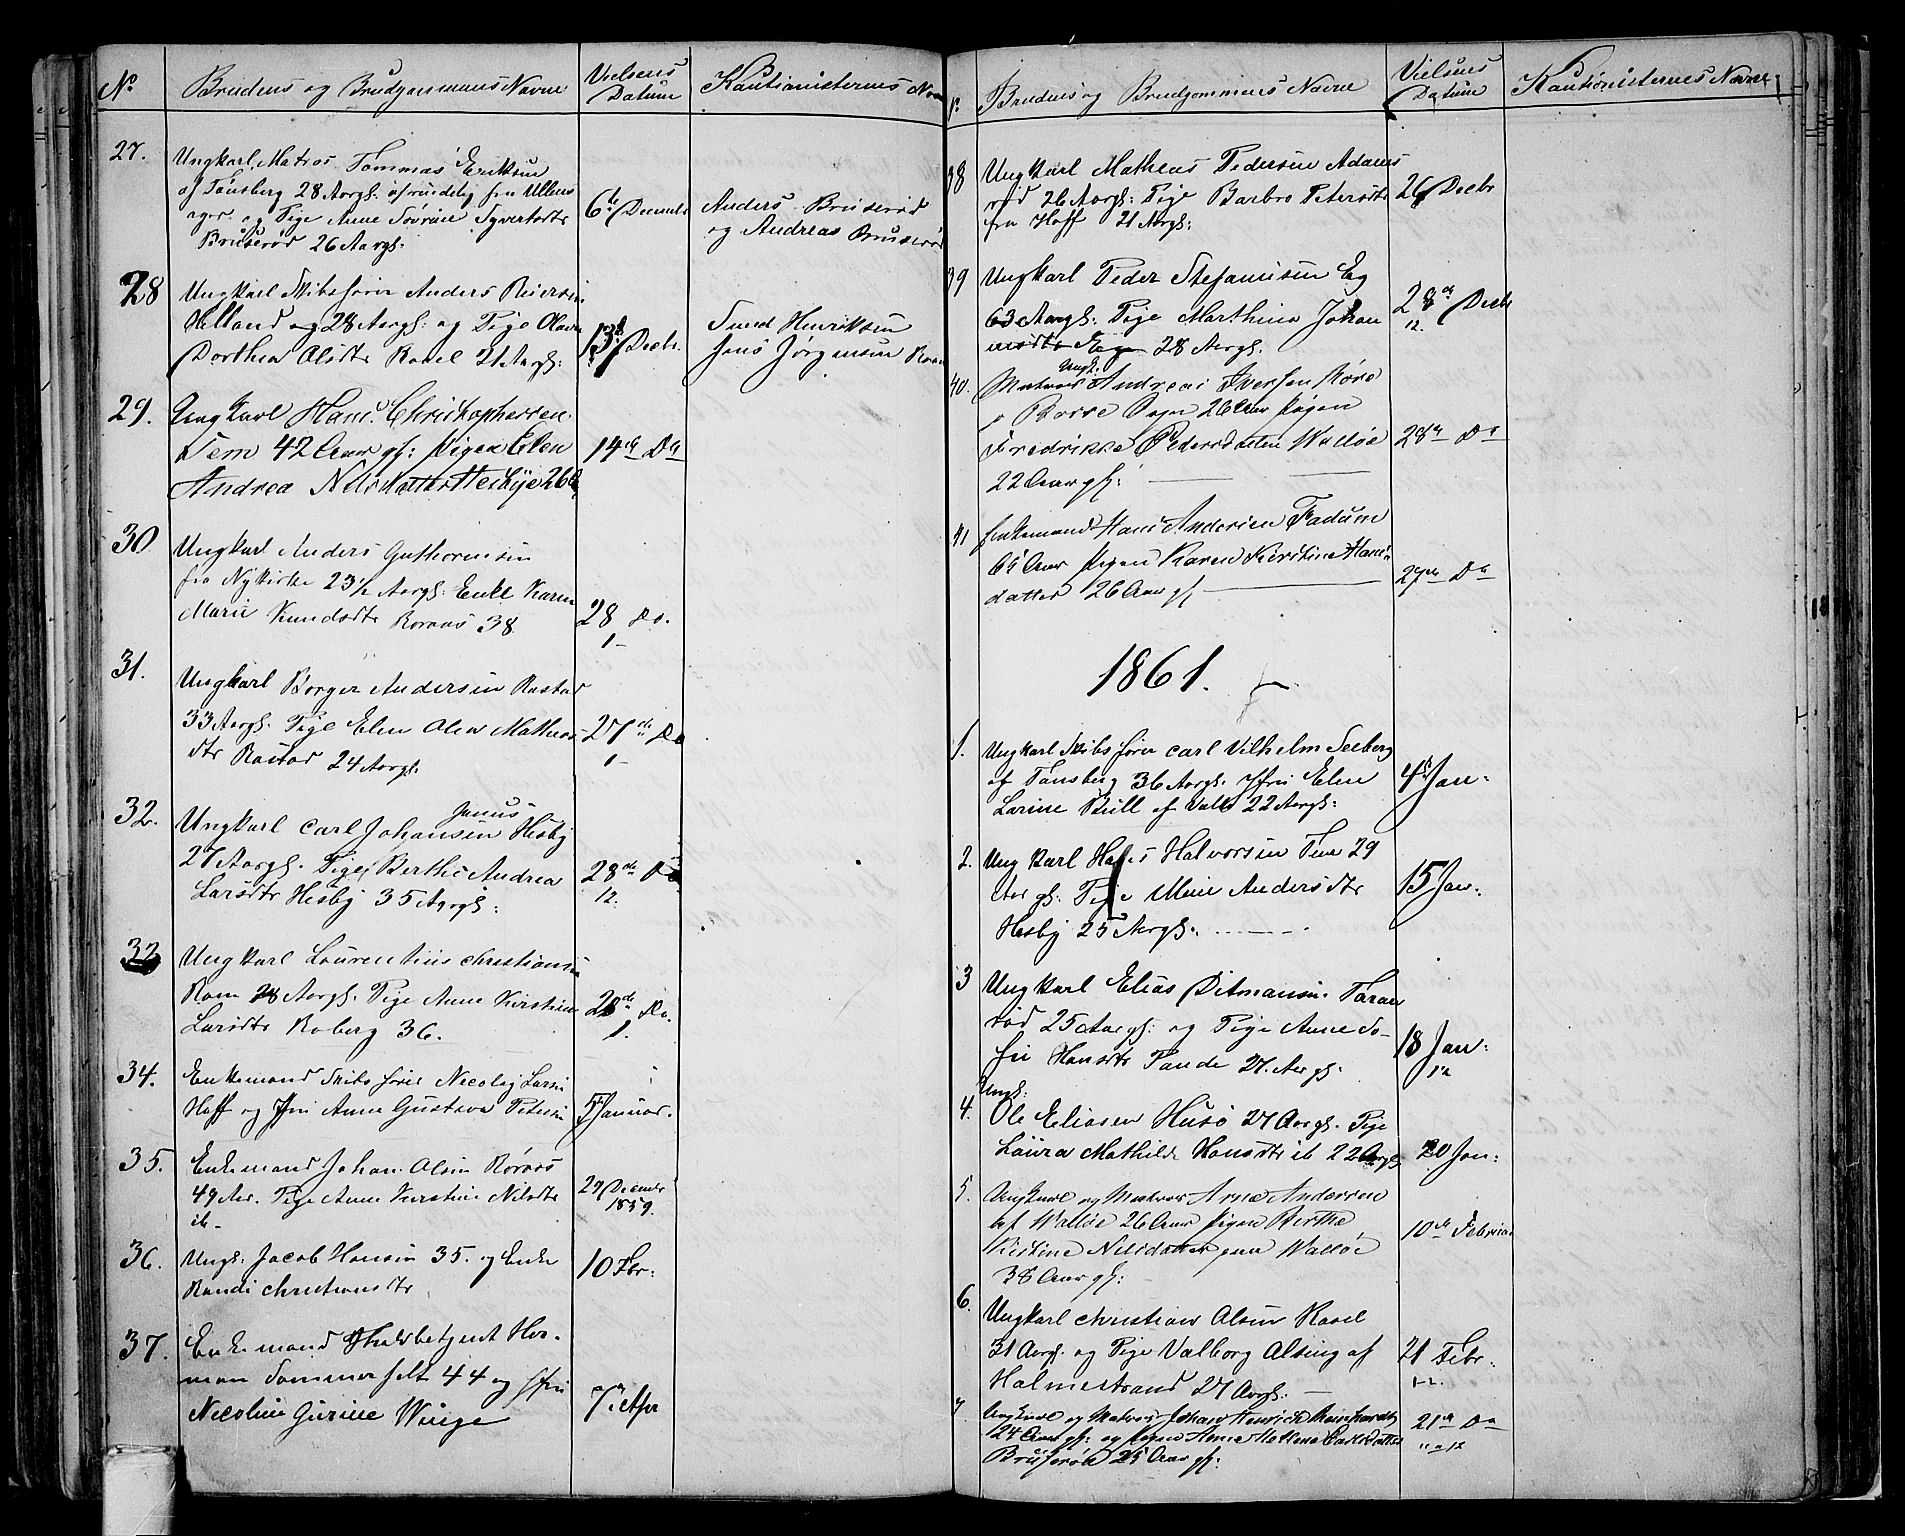 No
Brudens og Brudgommens Navne
Vielsens
Datum
Kautionisternes Nav
27.
Ungkarl Matros Tommas Eriksen
af Tønsberg 28 Aargl. oprindelig fra Ullens
ager og Pige Anne Sørine Syvertsdtr
Bruserød 26 Aargl:
6te Decemb
Anders Bruserød
og Andreas Bruserød
28
Ungkarl Skibsfører Anders Reiersen
Helland og 28 Aargl: og Pige Olava
Dorthea Olsdtr Roael 21 Aargl:
13de Decbr.
Henriksen
Jens Jørgensen
29.
Ungkarl Hans Christophersen
Tem 42 Aar gl: Pigen Elen
Andrea Nilsdatter Hesbye 26
14de Do
30
Ungkarl Anders Guthormsen
fra Nykirke 23 1/2 Aargl: Enke Karen
Marie Knudsdtr Roraas 38
28 Do.
1-
31.
Ungkarl Borger Andersen Rastad
33 Aargl. Pige Elen Olea Matheas
dtr Rastad 24 Aargl.
27de Do
1-
32.
Janus
Ungkarl Carl Johansen Hesby
27 Aargl. Pige Berthe Andrea
Larsdtr Hesby 35 Aargl:
28de Do
12.
33
Ungkarl Laurentius Christians
Ram 28 Aargl. Pige Anne Kirstine
Larsdtr Roberg 36.
28de Do.
1.
34.
Enkemand Skibsfører Nicolaj Larsen
Hoff og Jfr Anne Gustava Petersen
5te Januar.
35.
Enkemand Johan Olsen Roraas
49 Aar. Pige Anne Kirstine Nilsdtr
ib-
29 December
1859.
36.
Ungk: Jacob Hansen 35. og Enke
Randi Christiansdtr
10 Fbr:
37.
Enkemand Toldbetjent Her-
man Sommerfelt 44 og Jfru
Nicoline Gurine Winge
7de Apr
No
Brudens og Brudgommens Navne
Vielsens
Datum
Kautionisternes Navne.
38
Ungkarl Matheas Pedersen Adams
rød 26 Aargl: Pige Barbro Petersdtr
fra Hoff 21 Aargl:
26 Decbr
39
Ungkarl Peder Stefansen Eeg
63 Aargl: Pige Marthina Johan
nesdtr Eeg 28 Aargl.
28de Decbr
12.
40.
Ungk.
Matros Andreas Iversen Røre
i Borre Sogn 26 Aar Pigen
Fredrikke Pedersdatter Walløe
22 Aar gl:
28de Do
41
Enkemand Hans Andersen Fadum
Aar Pigen Karen Kirstine Hans
datter 26 Aar gl
27de Do
1861.
1.
Ungkarl Skibsfører Carl Vilhelm Seeberg
af Tønsberg 36 Aargl. Jfru Elen
Larine Bull af Vallø 22 Aargl:
4de Jan:
2.
Ungkarl Hans Halvorsen Tem 29
Aargl: Pige Mine Andersdtr
Hesby 25 Aargl.
15 Jan:
3
Ungkarl Elias Ditmansen Taran
rød 25 Aargl: og Pige Anne So-
fie Hansdtr Fande 27. Aargl:
18 Jan:
12
4.
Ungk:
Ole Eliasen Husø 27 Aargl. Pige
Laura Mathilde Hansdtr ib 22 Aargl
20 Jan:
5.
Ungkarl og Matros Arne Andersen
af Walløe 26 Aar Pigen Berthe
Kistine Nilsdatter paa Walløe
38 Aar gl:
10de Februar
6.
Ungkarl Christian Olsen Roael
31 Aargl. og Pige Valborg Alsing af
Holmestrand 27 Aargl:
21 Febr.
12.
7
Ungkarl og Matros Johan Henrich Reinhardts
24 Aar gl: og Pigen Anne Mathea Carlsdatter
Bruserød 25 Aar gl:
21de Do